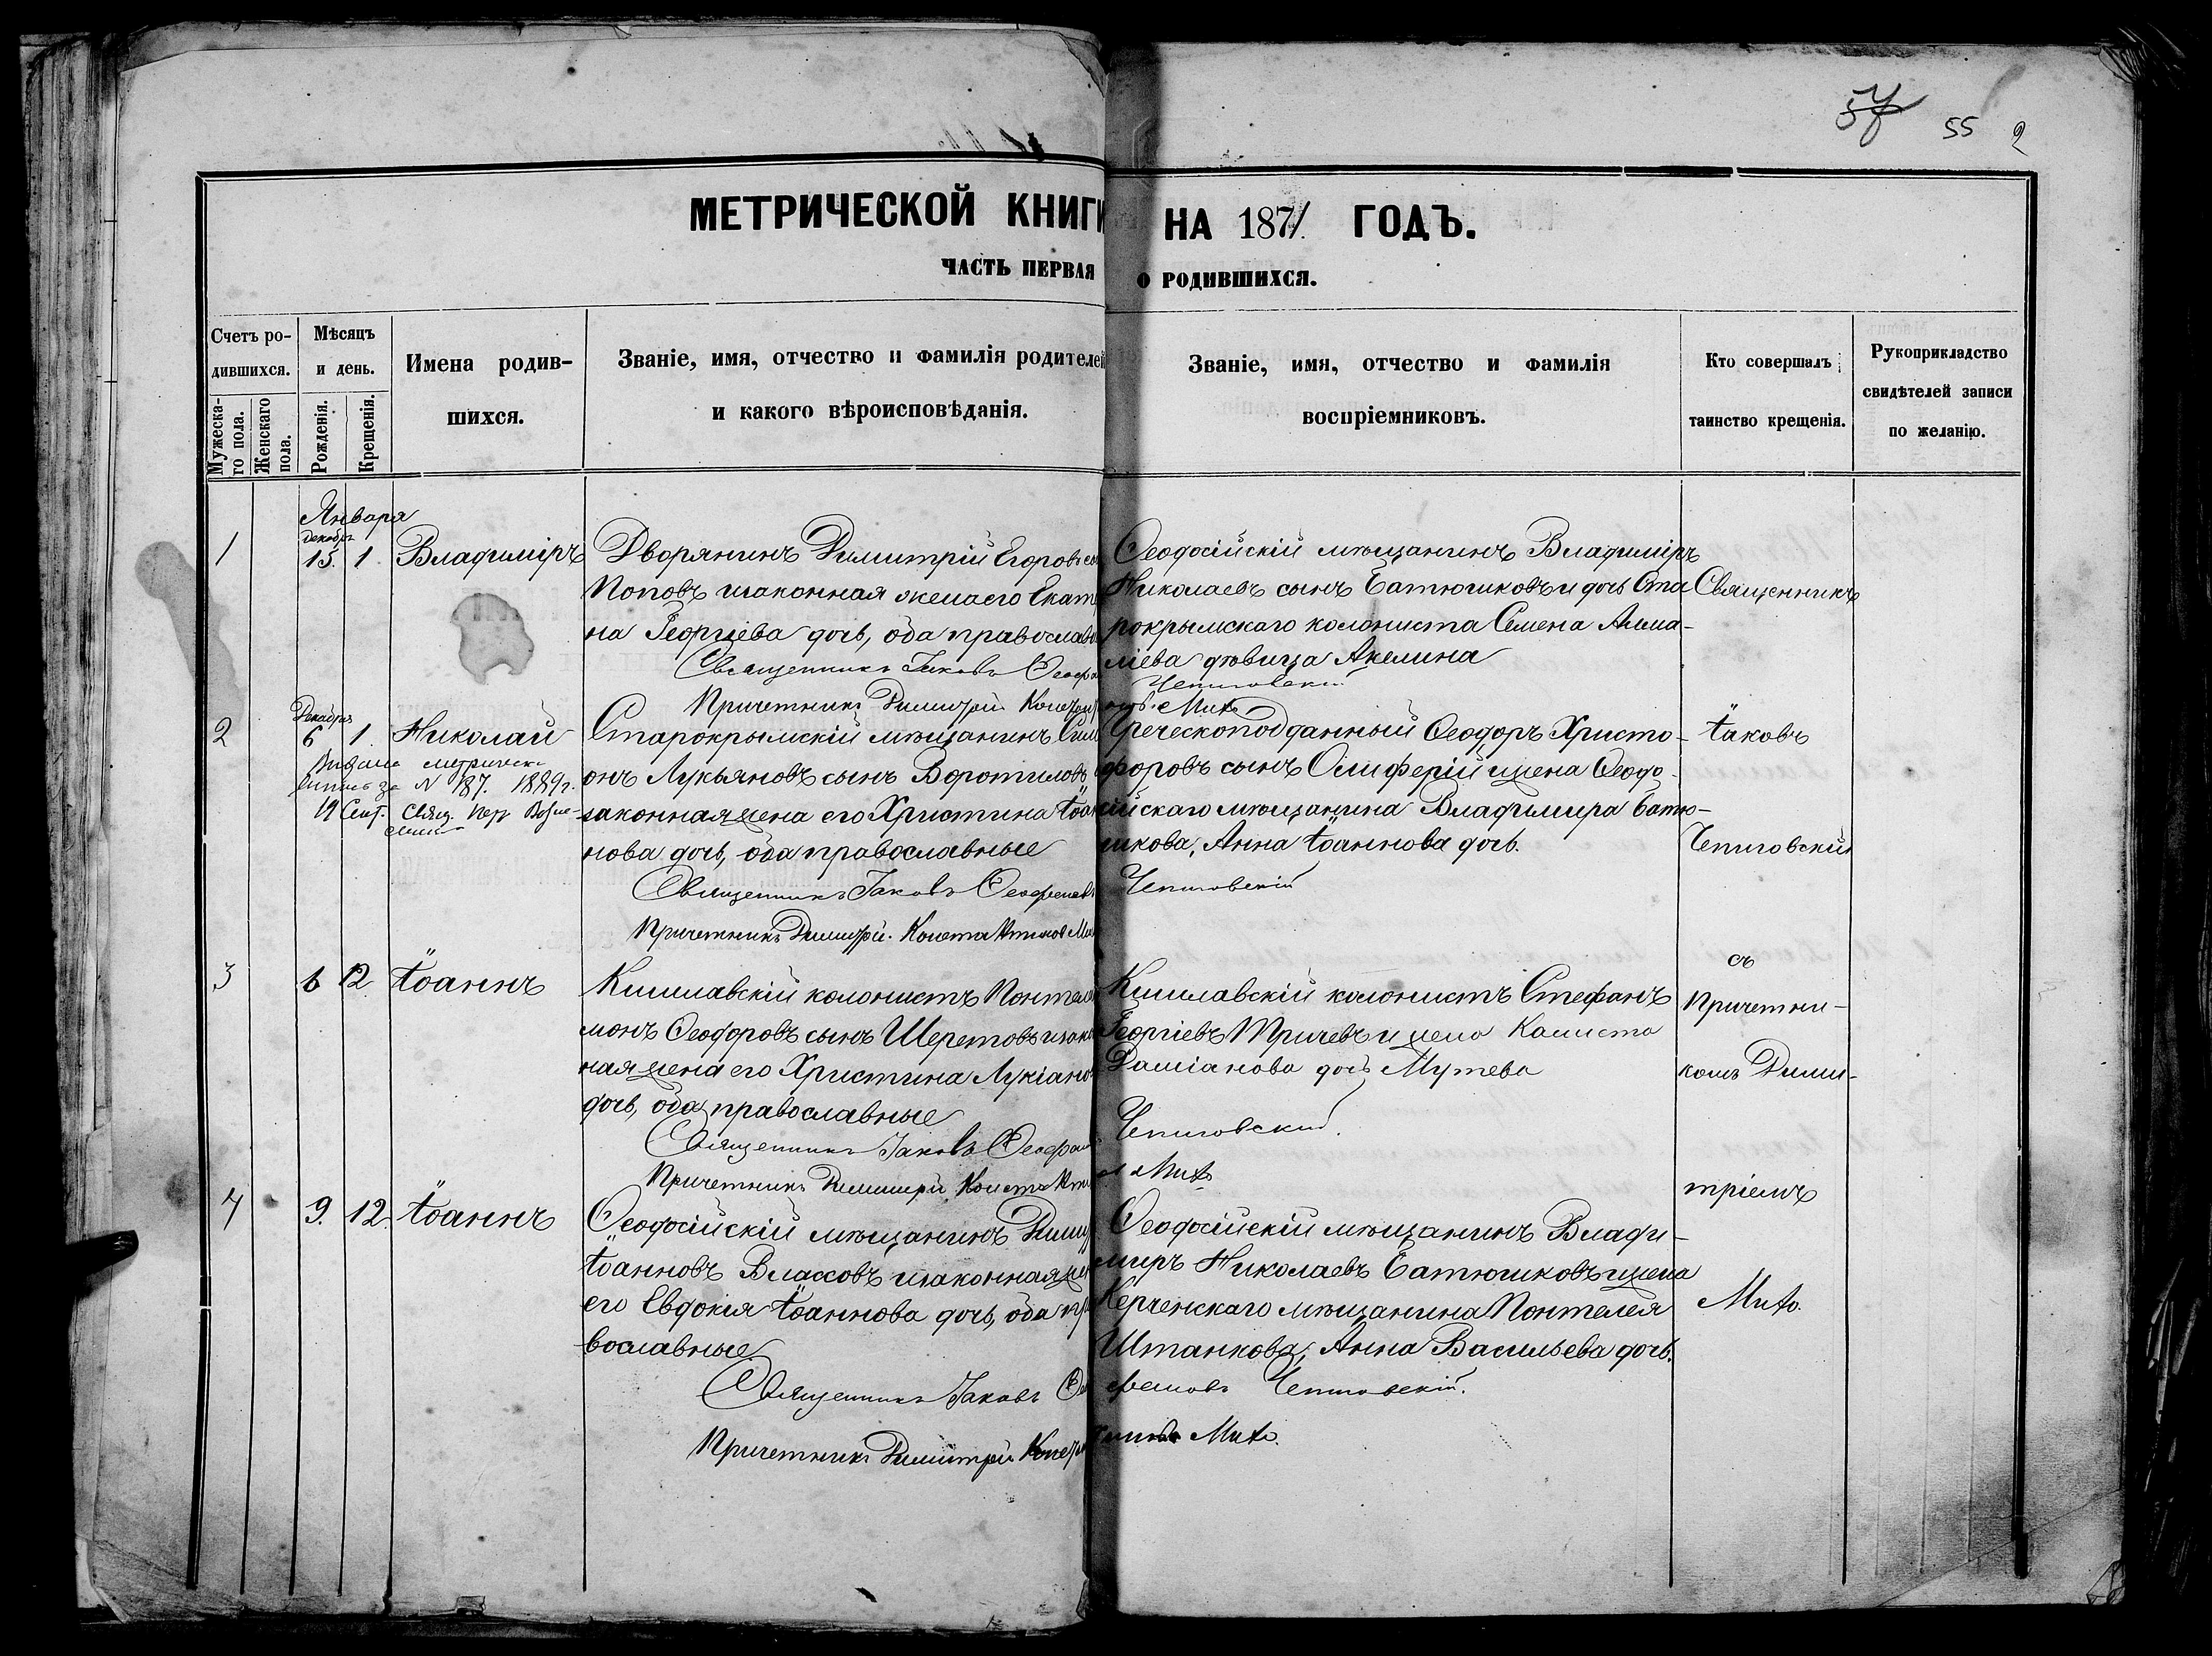 57 55 2
МЕТРИЧЕСКОЙ КНИГИ НА 1871 ГОДЪ.
ЧАСТЬ ПЕРВАЯ О РОДИВШИХСЯ.
Счетъ ро-
дившихся.
Мужеска-
го пола.
Женскаго
пола.
Мѣсяцъ
и день.
Рожденія.
Крещенія.
Имена родив-
шихся.
Званіе, имя, отчество и фамилія родителей
и какого вѣроисповѣданія.
Званіе, имя, отчество и фамилія
воспріемниковъ.
Кто совершалъ
таинство крещенія.
Рукоприкладство
свидѣтелей записи
по желанію.
Января
декабря
1 15. 1. Владиміръ
Дворянинъ Димитрій Егоровъ
Поповъ изаконная женаего Екате
на Георгіева дочь, оба православ
Священникъ Іаковъ Ѳеоф
Причетникъ Димитрій
Ѳеодосійскій мѣщанинъ Владиміръ
Николаевъ сынъ Батюшковъ и дочь Ста
рокрымскаго колониста Семена Алма-
ліева дѣвица Акелина
Чепиговскій
Мито
Декабря
2 6 1. Николай
метрическ
за N 187. 1889г.
19 Сент. Свящ.
Старокрымскій мѣщанинъ Сим
онъ Лукьяновъ сынъ Воротиловъ
законная жена его Христина Іоан
нова дочь, оба православные
Священникъ Іаковъ Ѳеофанов
Причетникъ Димитрій Константинов Ми
Греческоподданный Ѳеодоръ Христо-
форовъ сынъ Олиферій и жена Ѳеодо-
сійскаго мѣщанина Владимира Батю-
шкова, Анна Іоаннова дочь.
Чепиговскій
3 6 12. Іоаннъ
Кишлавскій колонистъ Понтеле
монъ Ѳеодоровъ сынъ Шеретовъ изакон
ная жена его Христина Лукіано
дочь, оба православные
Священникъ Іаковъ Ѳеофан
Причетникъ Димитрій Констан
Кишлавскій колонистъ Стефанъ
Георгіевъ Тричевъ и жена Калиста
Даміанова дочь Мутева
Чепиговскій.
Мито
4 9. 12. Іоаннъ
Ѳеодосійскій мѣщанинъ Дими
Іоанновъ Влассовъ изаконная же
его Евдокія Іоаннова дочь, оба пра
вославные
Священникъ Іаковъ Ѳе
Причетникъ Димитрій Конс
Ѳеодосійскій мѣщанинъ Влади-
миръ Николаевъ Батюшковъ и жена
Керченскаго мѣщанина Понтелея
Штанкова, Анна Васильева дочь.
Чепиговскій.
Мито.
Священникъ
Іаковъ
Чепиговскій
съ
Причетни-
комъ Дими-
тріемъ
Мито.